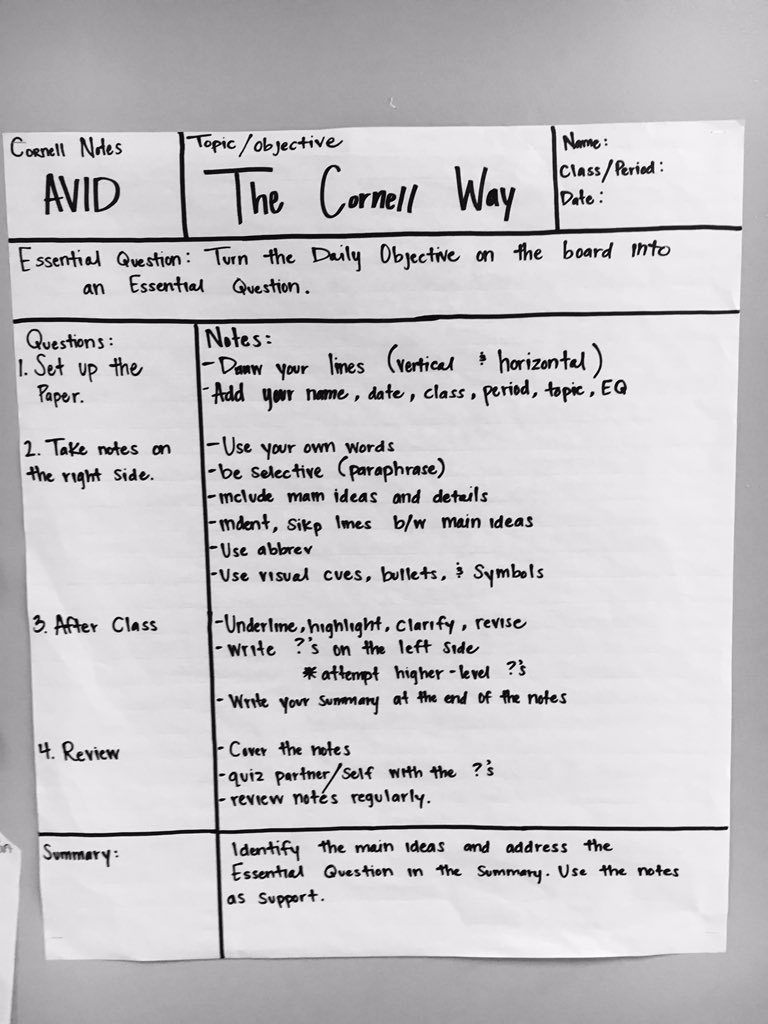 Cornell Notes
AVID
Topic/Objective
The Cornell Way
Name:
Class/Period:
Date:
Essential Question: Turn the Daily Objective on the board into
an Essential Question.
Questions:
1. Set up the
Paper.
Notes:
- Draw your lines (vertical & horizontal)
- Add your name, date, class, period, topic, EQ
2. Take notes on
the right side.
- Use your own words
- be selective (paraphrase)
- include main ideas and details
- indent, sikp lines b/w main ideas
- Use abbrev
- Use visual cues, bullets, & symbols
3. After Class
- Underline, highlight, clarify, revise
- write ?'s on the left side
* attempt higher-level ?'s
- Write your summary at the end of the notes
4. Review
- Cover the notes
- quiz partner/self with the ?'s
- review notes regularly.
Summary:
Identify the main ideas and address the
Essential Question in the Summary. Use the notes
as support.